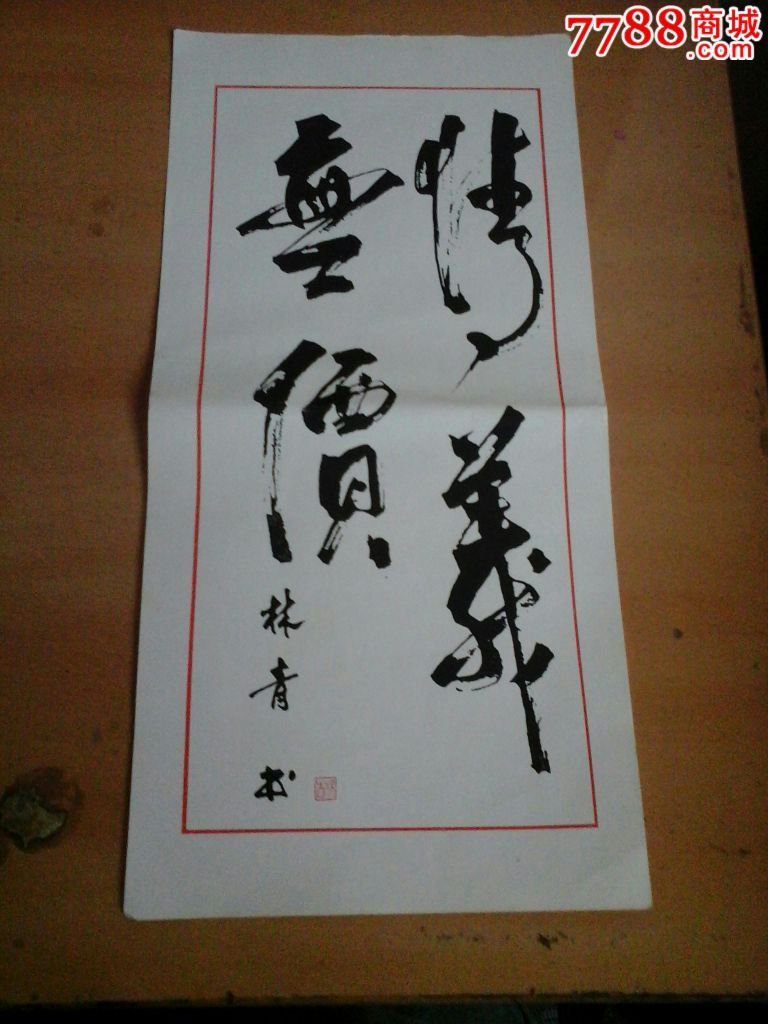 7788商城
.com
情義
無價
林青书